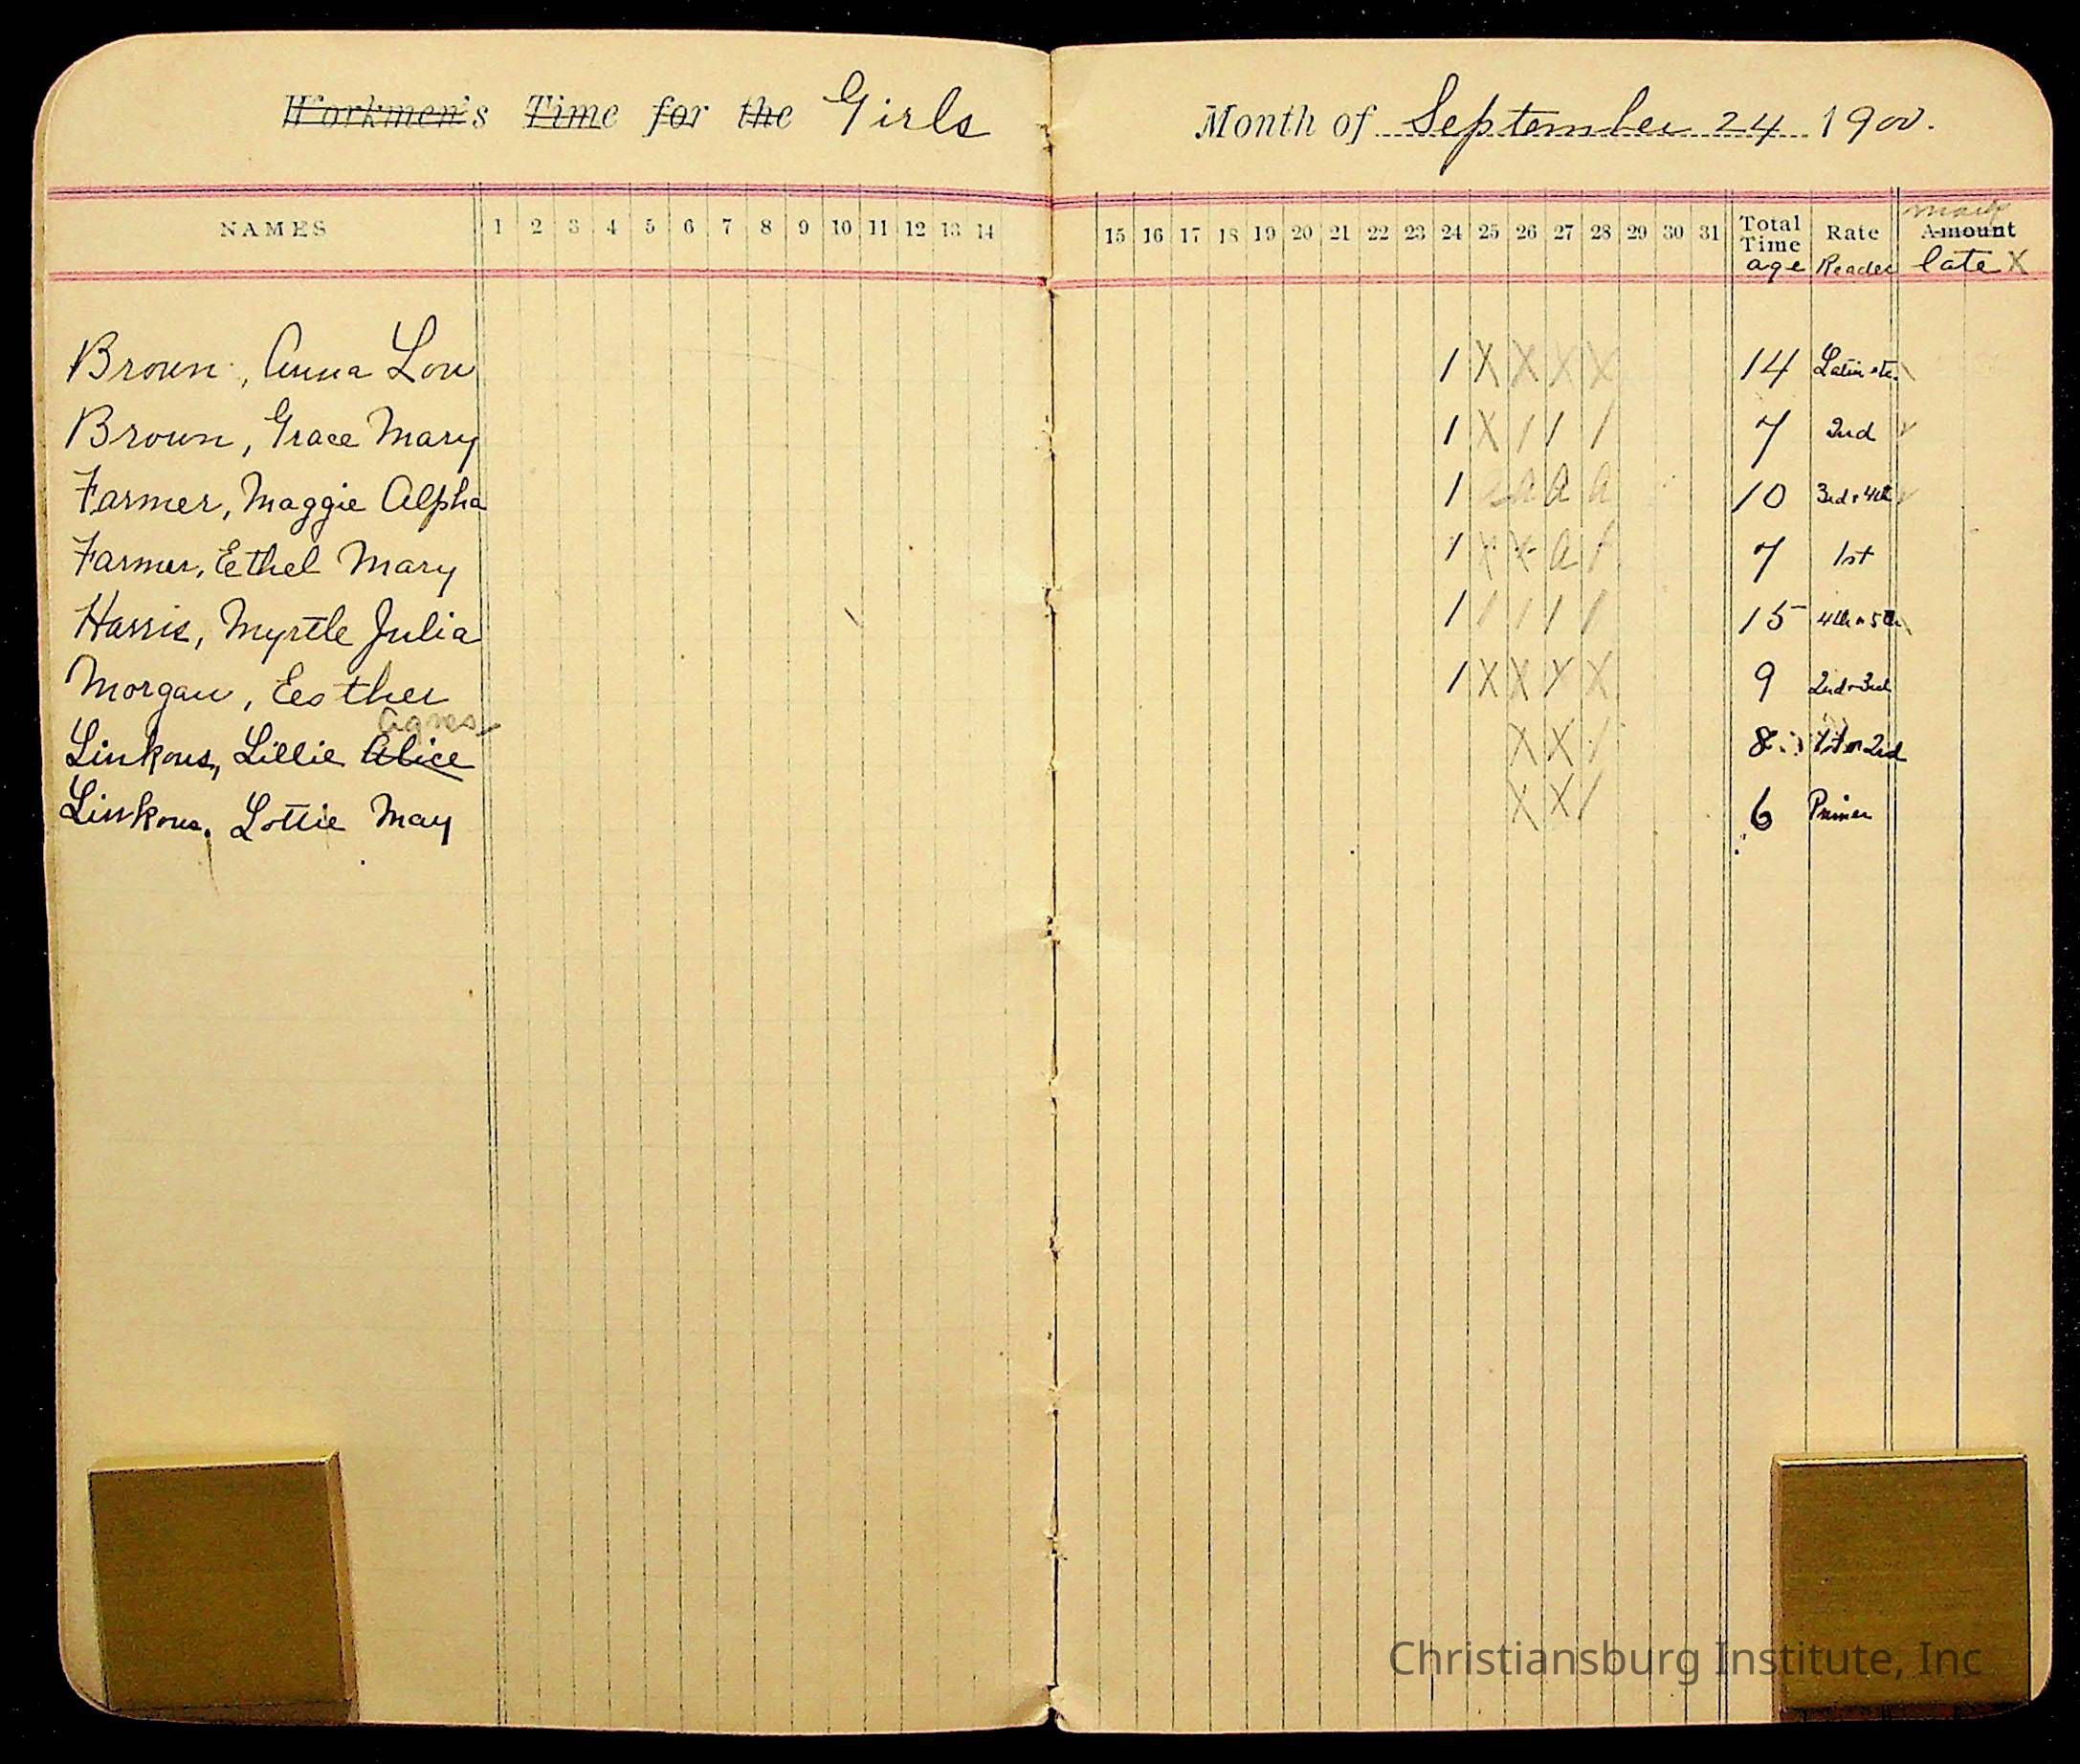 Workmen's Time for the Girls
Month of September 24 1900.
NAMES 1 2 3 4 5 6 7 8 9 10 11 12 13 14 15 16 17 18 19 20 21 22 23 24 25 26 27 28 29 30 31 Total Time age Rate Reader mark Amount late X
Brown, Anna Lou 1 X X X X 14 Latin etc.
Brown, Grace Mary 1 X / / / 7 2nd
Farmer, Maggie Alpha 1 a a a 10 3rd & 4th
Farmer, Ethel Mary 1 X X a / 7 1st
Harris, Myrtle Julia 1 / / / / 15 4th or 5th
Morgan, Eesther 1 X X X X 9 2nd or 3rd
Agnes
Linkous, Lillie Alice X X / 8 1st or 2nd
Linkous, Lottie May X X / 6 Primer
Christiansburg Institute, Inc